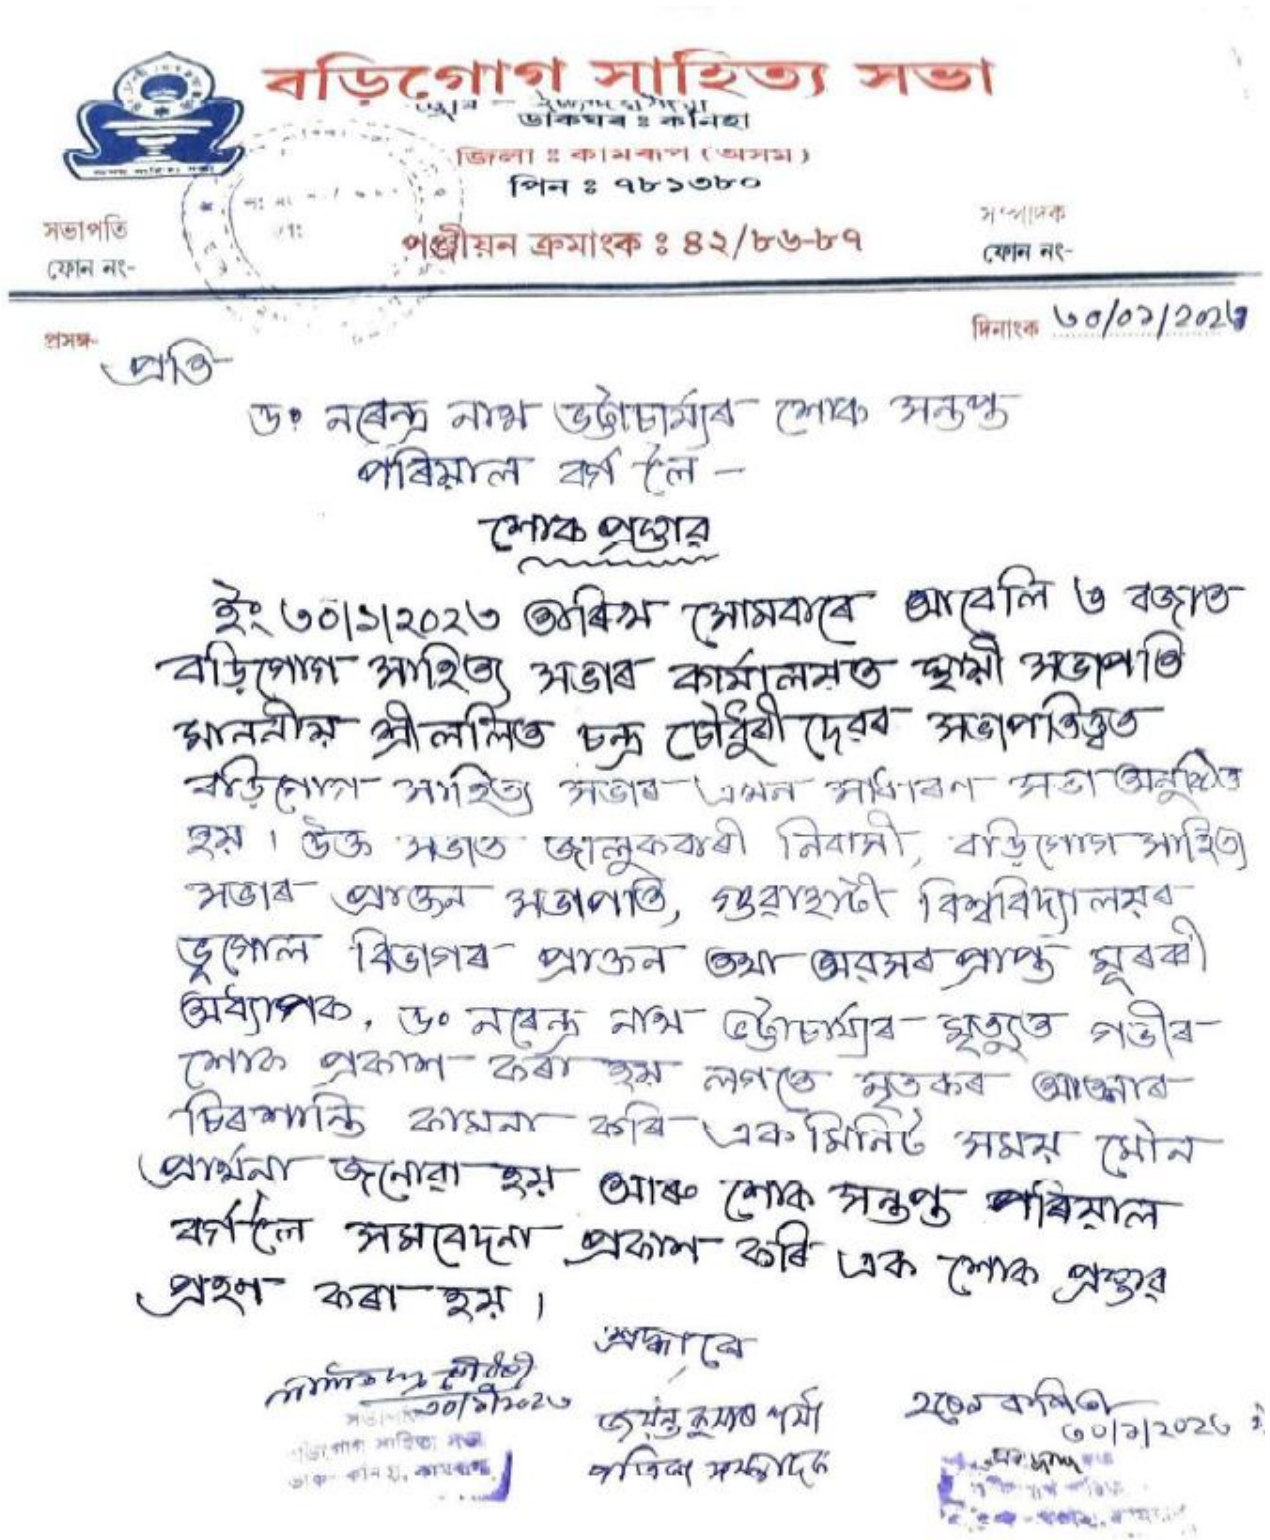 বড়িগোগ সাহিত্য সভা
ডাকঘৰ ঃ কনিহা
জিলা ঃ কামৰূপ (অসম)
পিন ঃ ৭৮১৩৮০
সভাপতি
ফোন নং-
সম্পাদক
ফোন নং-
পঞ্জীয়ন ক্ৰমাংক ঃ ৪২/৮৬-৮৭
প্ৰসঙ্গ-
দিনাংক ৩০/০১/2০২৩
প্ৰতি-
ড° নৰেন্দ্ৰ নাথ ভট্টাচাৰ্য্যৰ শোক সন্তপ্ত
পৰিয়াল বৰ্গ লৈ -
শোক প্ৰস্তাৱ
ইং ৩০/১/২০২৩ তাৰিখ সোমবাৰে আবেলি ৩ বজাত
বড়িগোগ সাহিত্য সভাৰ কাৰ্য্যালয়ত স্থায়ী সভাপতি
মাননীয় শ্ৰীললিত চন্দ্ৰ চৌধুৰী দেৱৰ সভাপতিত্বত
বড়িগোগ সাহিত্য সভাৰ এখন সাধাৰণ সভা অনুষ্ঠিত
হয়। উক্ত সভাত জালুকবাৰী নিবাসী, বড়িগোগ সাহিত্য
সভাৰ প্ৰাক্তন সভাপতি, গুৱাহাটী বিশ্ববিদ্যালয়ৰ
ভূগোল বিভাগৰ প্ৰাক্তন তথা অৱসৰ প্ৰাপ্ত মূৰব্বী
অধ্যাপক, ড° নৰেন্দ্ৰ নাথ ভট্টাচাৰ্য্যৰ মৃত্যুত গভীৰ
শোক প্ৰকাশ কৰা হয় লগতে মৃতকৰ আত্মাৰ
চিৰশান্তি কামনা কৰি এক মিনিট সময় মৌন
প্ৰাৰ্থনা জনোৱা হয় আৰু শোক সন্তপ্ত পৰিয়াল
বৰ্গলৈ সমবেদনা প্ৰকাশ কৰি এক শোক প্ৰস্তাৱ
গ্ৰহণ কৰা হয়।
শ্ৰদ্ধাৰে
ললিত চন্দ্ৰ চৌধুৰী
৩০/১/২০২৩
সভাপতি
বড়িগোগ সাহিত্য সভা
জয়ন্ত কুমাৰ শৰ্মা
হৰেন কলিতা
৩০/১/২০২৩